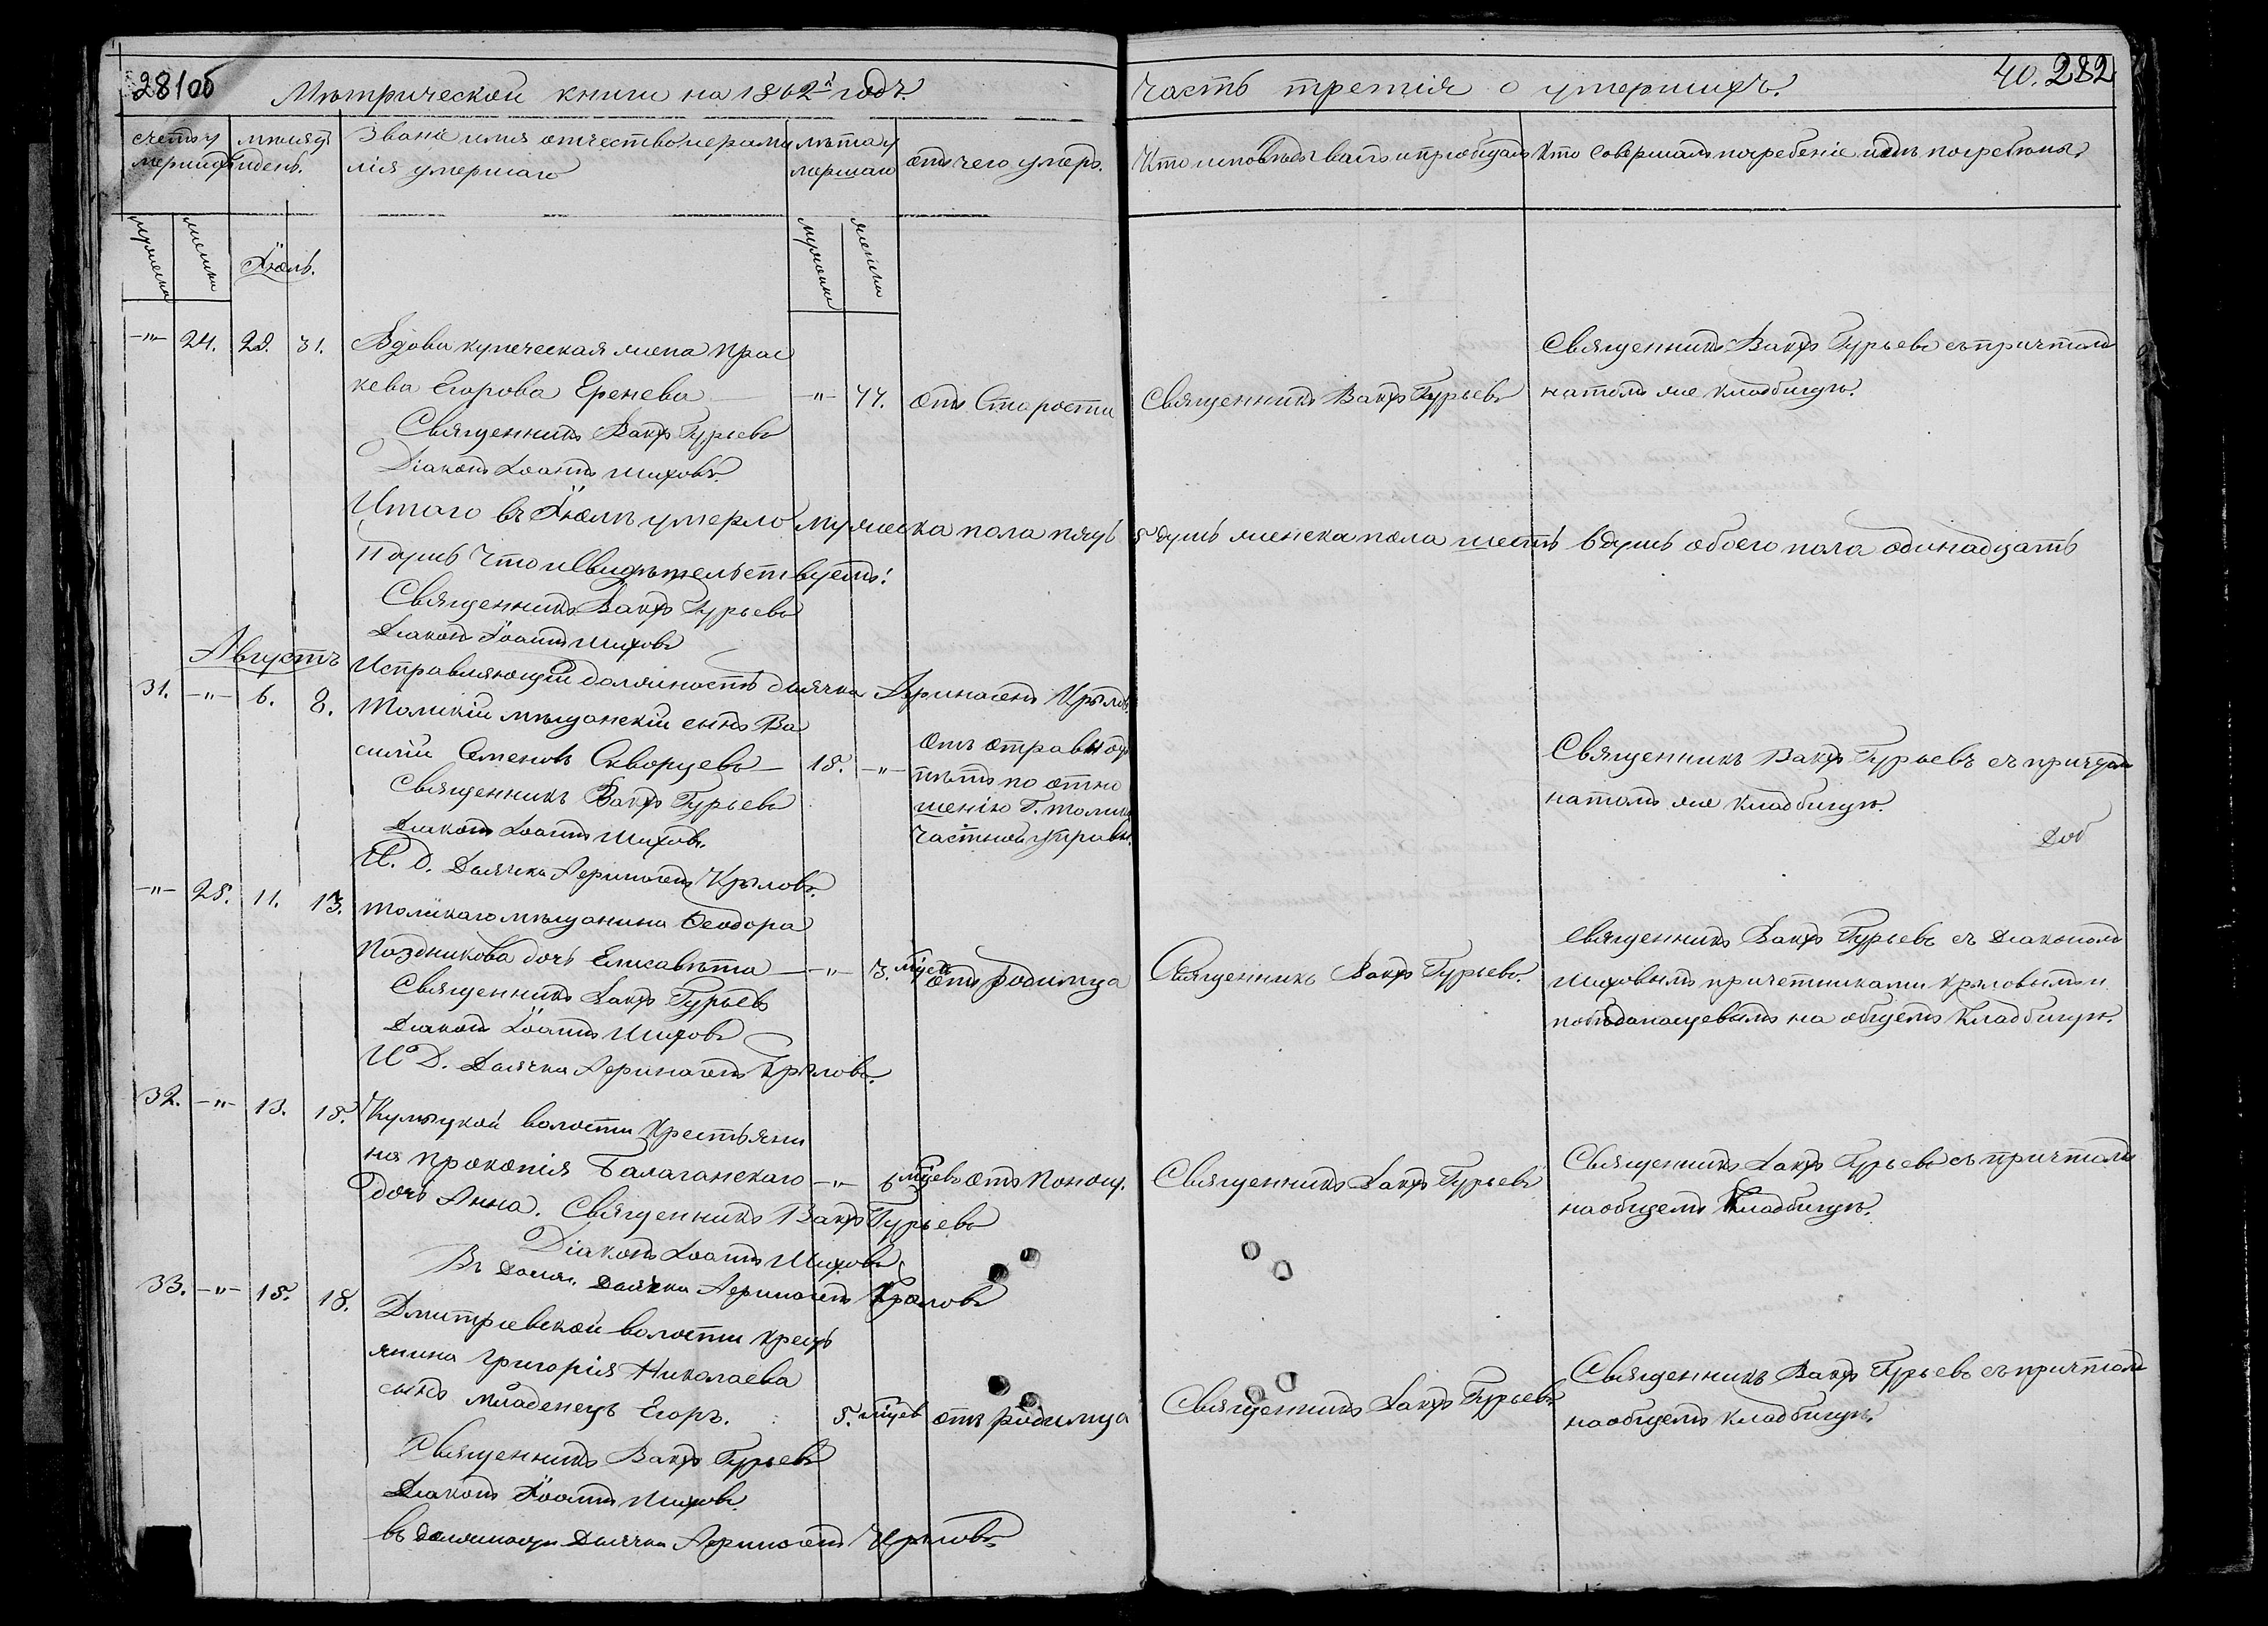 281об
Метрической книги на 1862й годъ.
Часть третія о умершихъ.
40. 282
счетъ у
мершихъ
месяцъ
и день.
Званіе имя отчество и фами
лія умершаго
лѣта у
мершаго
отъ чего умеръ.
Кто исповѣдывалъ и пріобщалъ
Кто совершалъ погребеніе и гдѣ погребены.
мужеска
женска
Іюль.
мужеска
женска
-"- 24. 28. 31. Вдова купеческая жена Прас
кева Егорова Еренева -"- 77. отъ Старости
Священникъ Вакхъ Гурьевъ
Священникъ Вакхъ Гурьевъ съ причтомъ
на томъ же кладбищѣ.
Священникъ Вакхъ Гурьевъ
Діаконъ Іоаннъ Шиховъ.
Итого въ Іюлѣ умерло мужеска пола пять 5 душъ женска пола шесть 6 душъ обоего пола одинадцать
11 душъ Что и свидѣтельствуетъ:
Священникъ Вакхъ Гурьевъ
Діаконъ Іоаннъ Шиховъ
Исправляющій должность дьячка Крыловъ
Августъ
31. -"- 6. 8. Томскій мѣщанскій сынъ Ва
силій Семеновъ Скворцевъ 18. -"-
отъ отравы
по отно
шенію Г. Томск
частной управы.
Священникъ Вакхъ Гурьевъ съ причтомъ
на томъ же кладбищѣ.
Священникъ Вакхъ Гурьевъ
Діаконъ Іоаннъ Шиховъ.
И. Д. Дьячка Крыловъ.
-"- 25. 11. 13. Томскаго мѣщанина Ѳеодора
Поздникова дочь Елисавѣта -"- 3. мѣсяц отъ родимца
Священникъ Вакхъ Гурьевъ.
Священникъ Вакхъ Гурьевъ съ Діакономъ
Шиховымъ причетниками Крыловымъ и
на общемъ Кладбищѣ.
Священникъ Вакхъ Гурьевъ
Діаконъ Іоаннъ Шиховъ
И Д. Дьячка Крыловъ.
32. -"- 13. 15. волости Крестьяни
на Прокопія Балаганскаго -"- 6 мѣсцевъ отъ Понош.
Священникъ Вакхъ Гурьевъ
Священникъ Вакхъ Гурьевъ съ причтомъ
на общемъ Кладбищѣ.
дочь Анна. Священникъ Вакхъ Гурьевъ
Діаконъ Іоаннъ Шиховъ
Въ Долж. Дьячка Крыловъ
33. -"- 15. 18. Дмитріевской волости Кресть
янина Григорія Николаева
сынъ младенецъ Егоръ. 5. мѣсцев отъ родимца
Священникъ Вакхъ Гурьевъ
Священникъ Вакхъ Гурьевъ съ причтомъ
на общемъ кладбищѣ.
Священникъ Вакхъ Гурьевъ
Діаконъ Іоаннъ Шиховъ.
въ должности Дьячка Крыловъ